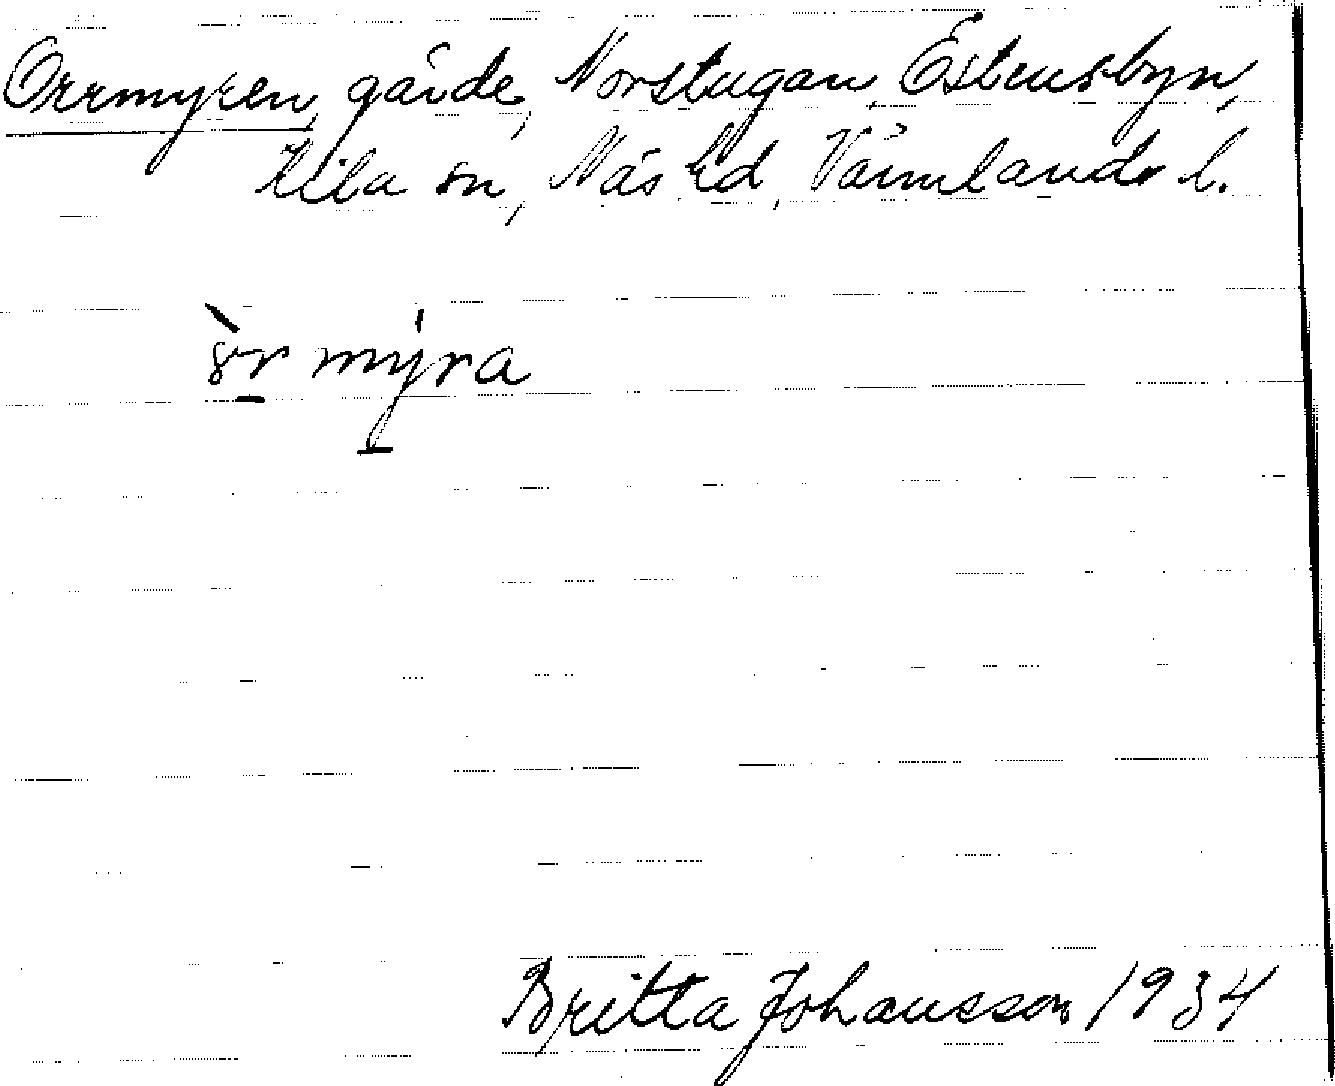 Orrmyren, gärde, Norstugan, Östensbyn,
Kila sn, Näs hd, Värmlands l.
òr mýra
Britta Johansson 1934